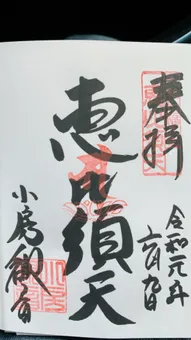 奉拝
令和元年
六月九日
恵比須天
小鳥観音